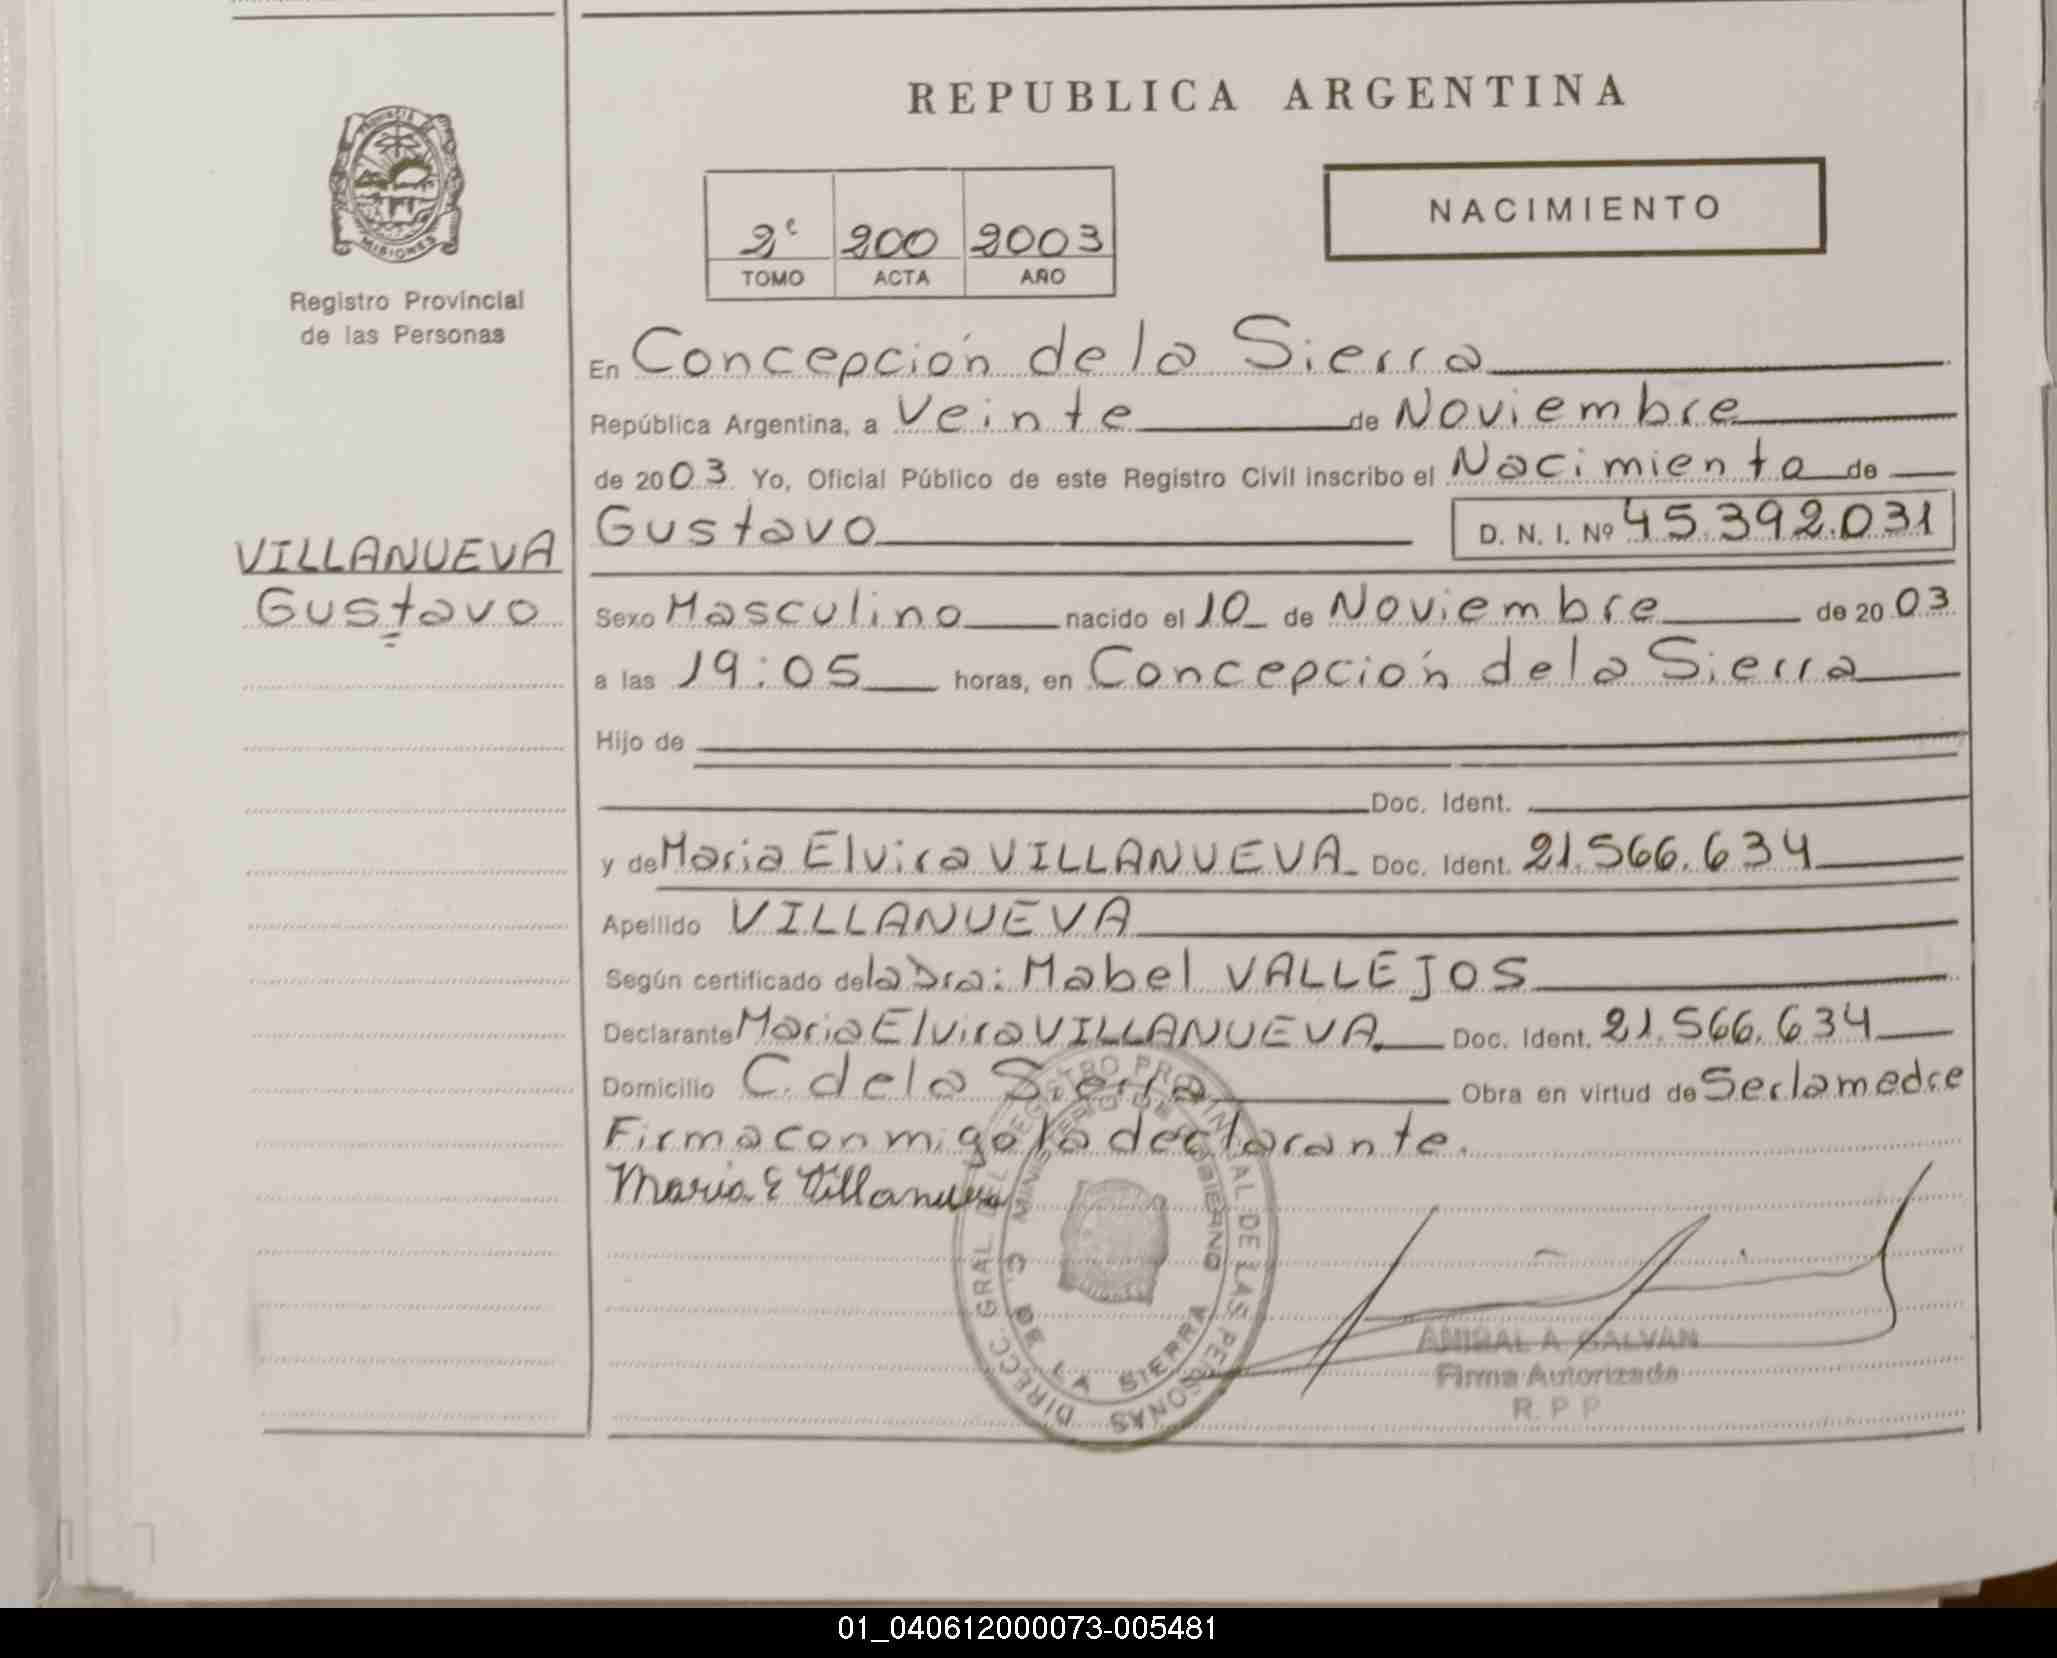 REPUBLICA ARGENTINA
PROVINCIA DE
MISIONES
Registro Provincial
de las Personas
2º 200 2003
TOMO ACTA AÑO
NACIMIENTO
En Concepción de la Sierra
República Argentina, a Veinte de Noviembre
de 2003 Yo, Oficial Público de este Registro Civil inscribo el Nacimiento de
Gustavo D. N. I. Nº 45.392.031
VILLANUEVA
Gustavo
Sexo Masculino nacido el 10 de Noviembre de 20 03
a las 19:05 horas, en Concepción de la Sierra
Hijo de
Doc. Ident.
y de Maria Elvira VILLANUEVA Doc. Ident. 21.566.634
Apellido VILLANUEVA
Según certificado de la Dra: Mabel VALLEJOS
Declarante Maria Elvira VILLANUEVA Doc. Ident. 21.566.634
Domicilio C. de la Sierra Obra en virtud de Ser la madre
Firma conmigo la declarante.
Maria E Villanueva
DIRECC. GRAL. DEL REGISTRO PROVINCIAL DE LAS PERSONAS
MINISTERIO DE GOBIERNO
C. DE LA SIERRA
ANIBAL A GALVAN
Firma Autorizada
R. P P
01_040612000073-005481